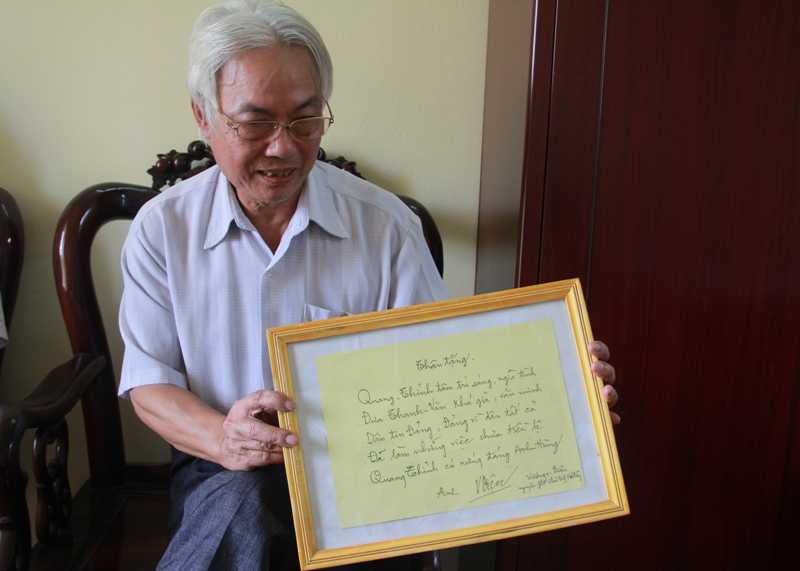 Thân tặng.
Quang Thịnh tâm trí sáng, ngời tình
Đưa Thanh Văn khá giả, văn minh
Dân tin Đảng, Đảng vì dân tất cả
Đã làm những việc chưa
Quang Thịnh có xứng đáng Anh Hùng!
Anh